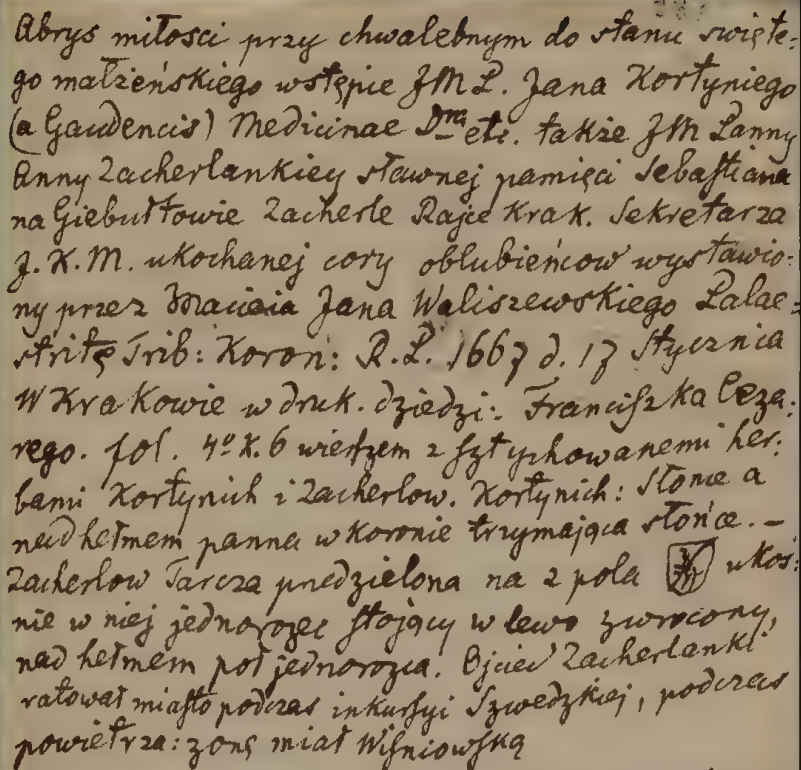 Abrys miłosci przy chwalebnym do stanu święte-
go małżeńskiego wstępie JMP. Jana Kortyniego
(a Gaudencis) Medicinae Dra etc. także JM Panny
Anny Zacherlankiey sławnej pamięci Sebastiana
na Giebułtowie Zacherle Rajce Krak. Sekretarza
J. K. M. ukochanej cory oblubieńcow wystawio-
ny przez Macieia Jana Waliszewskiego Palae-
stritę Trib: Koron: R. P. 1667 d. 17 Stycznia
W Krakowie w druk. dziedzi: Franciszka Ceza:
rego. fol. 4º k. 6 wierszem z sztychowanemi her:
bami Kortynich i Zacherlow. Kortynich: Słonce a
nad hełmem panna w koronie trzymająca słońce. –
Zacherlow Tarcza przedzielona na 2 pola ukoś:
nie w niej jednorozec stojący w lewo zwrocony,
nad hełmem poł jednorozca. Ojciec Zacherlanki
ratował miasto podczas inkursyi Szwedzkiej, podczas
powietrza: zonę miał Wiśniowską